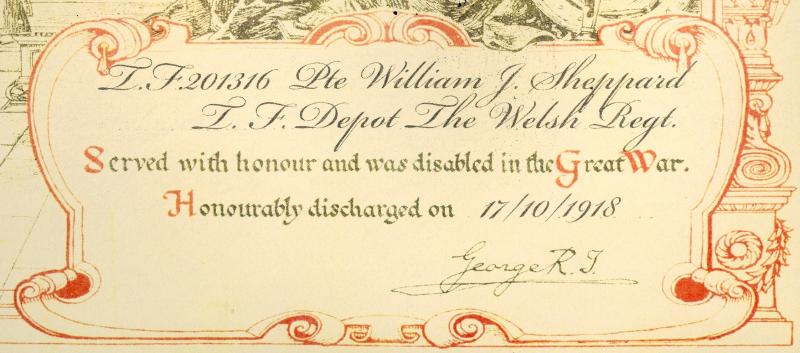 T.F.201316 Pte William J. Sheppard
T. F. Depot The Welsh Regt.
Served with honour and was disabled in the Great War.
Honourably discharged on 17/10/1918
George R. I.